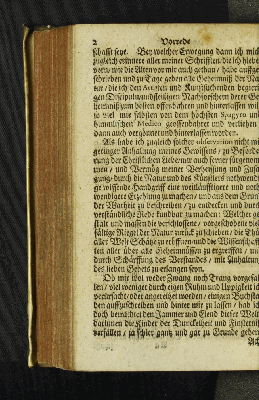 2 Vorrede
schafft seye. Bey welcher Erwegung dann ich mich
zugleich erinnert aller meiner Schrifften / die ich bißhe
vern / wie die Alten vor mir auch gethan / habe auffge
schrieben und zu Tage geben alle Geheimnuß der Na
tur / die ich den und Kunstsuchenden begieri
gen Discipuln und fleissigen Nachforschern derer Ge
heimnuß zum besten offenbahren und hinterlassen wil
so viel mir selbsten von dem höchsten Spagyro und
himmlischen Medico geoffenbahret und verliehen /
dann auch vergönnet und hinterlassen worden.
Als habe ich zugleich solcher observation nicht mit
geringer Anhaltung meines Gewissens / zu Beförde
rung der Christlichen Liebe / mir auch ferner fürgenom
men / und Vermög meiner Verheissung und Zusa
gung / durch die Natur und des Künstlers nothwendi
ge wissende Handgriff eine weitläufftigere und noth
wendigere Erzehlung zu machen / und aus dem Grund
der Warheit zu beschreiben / zu entdecken und durch
verständliche Rede kundbar zu machen: Welcher ge
stalt und massen die verschlossene / vorgeschobene vie
fältige Riegel der Natur zurück zu schieben / die Thür
aller Welt Schätz zu eröffnen / und die Wissenschaff
ten aller über alle Geheimnussen zu ergreiffen / und
durch Schärffung des Verstandes / mit Anhaltung
des lieben Gebets zu erlangen seyn.
Ob mir wol weder Zwang noch Drang vorgefal
len / viel weniger durch eigen Ruhm und Üppigkeit ich
verursacht / oder angereitzet worden / einigen Buchsta
ben auffzuschreiben und hinter mir zu lassen / hab ich
doch betrachtet den Jammer und Elend dieser Welt
darinnen die Kinder der Dunckelheit und Finsternis
verfallen / ja schier gantz und gar zu Grunde gehen